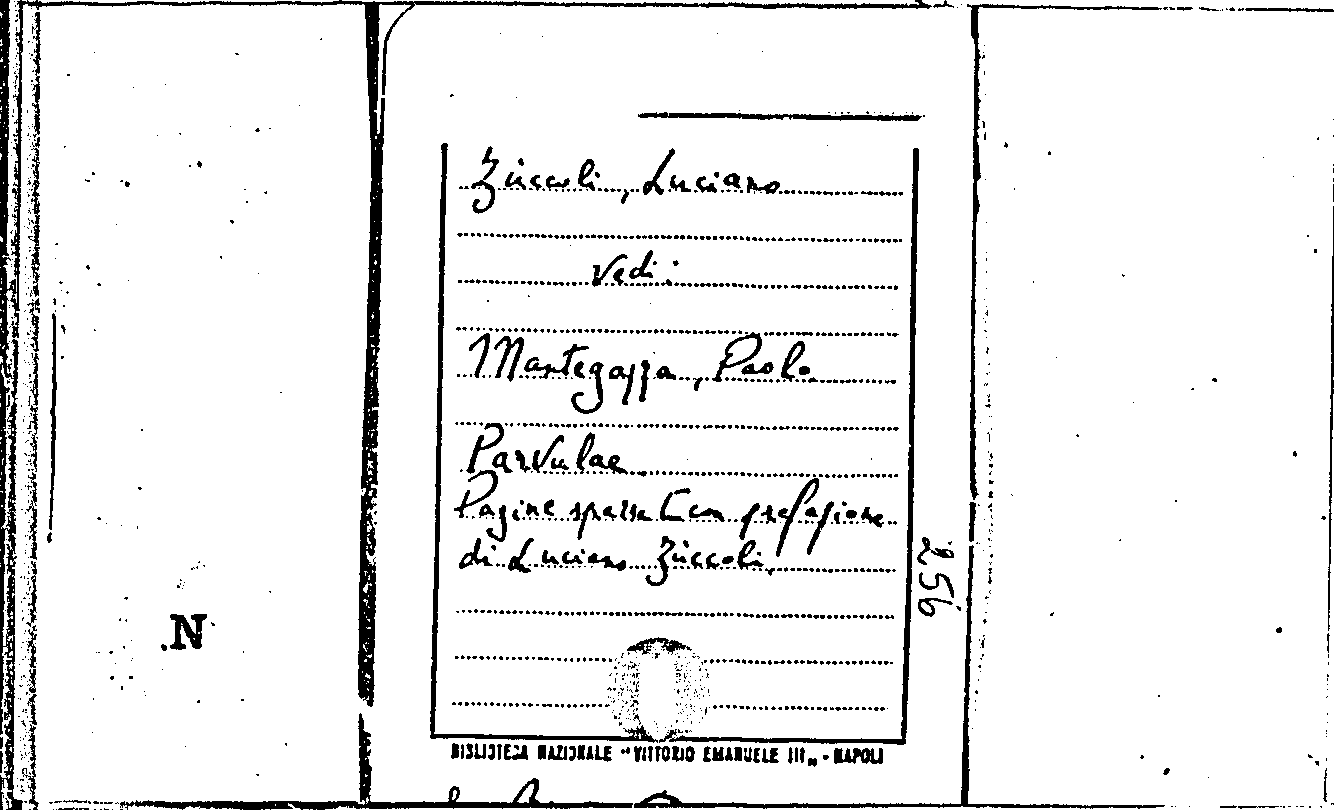 Zùccoli, Luciano
Vedi:
Mantegazza, Paolo
Parvulae
Pagine sparse Con prefazione
di Luciano Zùccoli.
256
N
BIBLIOTECA NAZIONALE "VITTORIO EMANUELE III" - NAPOLI